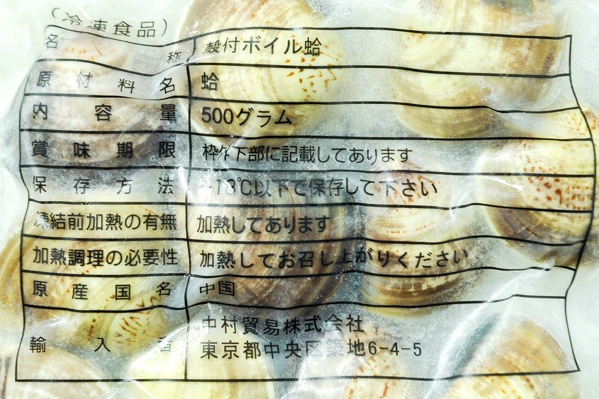 (冷凍食品)
名称 殻付ボイル蛤
原材料名 蛤
内容量 500グラム
賞味期限 枠外下部に記載してあります
保存方法 -18℃以下で保存して下さい
凍結前加熱の有無 加熱してあります
加熱調理の必要性 加熱してお召し上がりください
原産国名 中国
輸入者 中村貿易株式会社
東京都中央区築地6-4-5